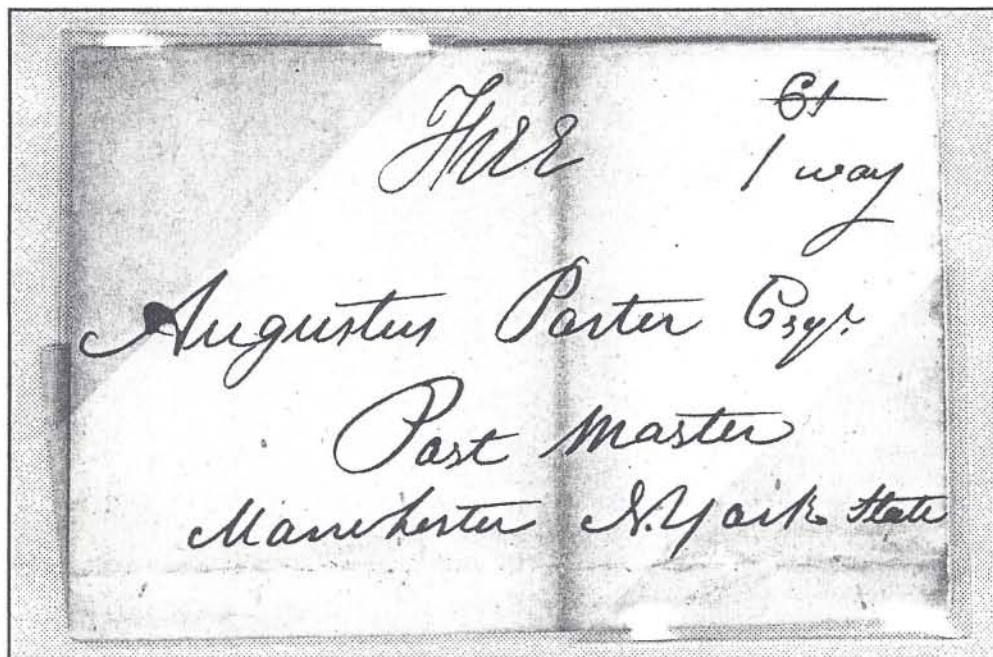 Free
1 way
Augustus Porter Esqr.
Post Master
Manchester N. York State